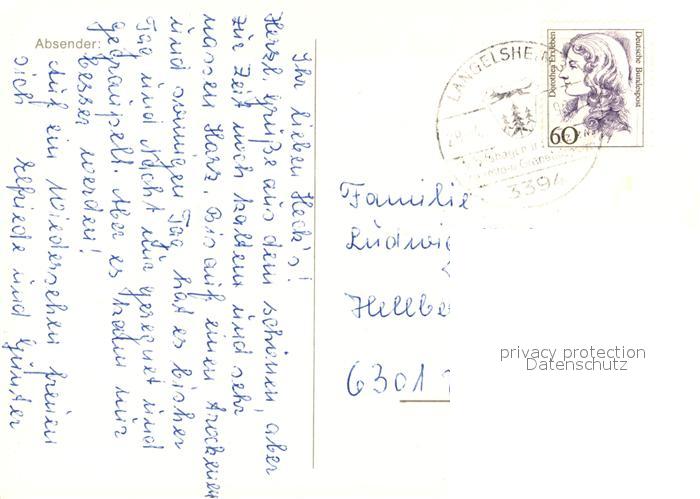 Absender:
Ihr lieben Heck's!
Herzl. Grüße aus dem schönen, aber
zur Zeit noch kaltem und sehr
nassen Harz. Bis auf einen trockenen
und sonnigen Tag hat es bisher
Tag und Nacht nur geregnet und
gegraupelt. Aber es kann nur
besser werden!
Auf ein Wiedersehen freuen
sich Elfriede und Günter
LANGELSHEIM
3394
Dorothea Erxleben
Deutsche Bundespost
60
Familie
Ludwig
Hellbe
6301
privacy protection
Datenschutz